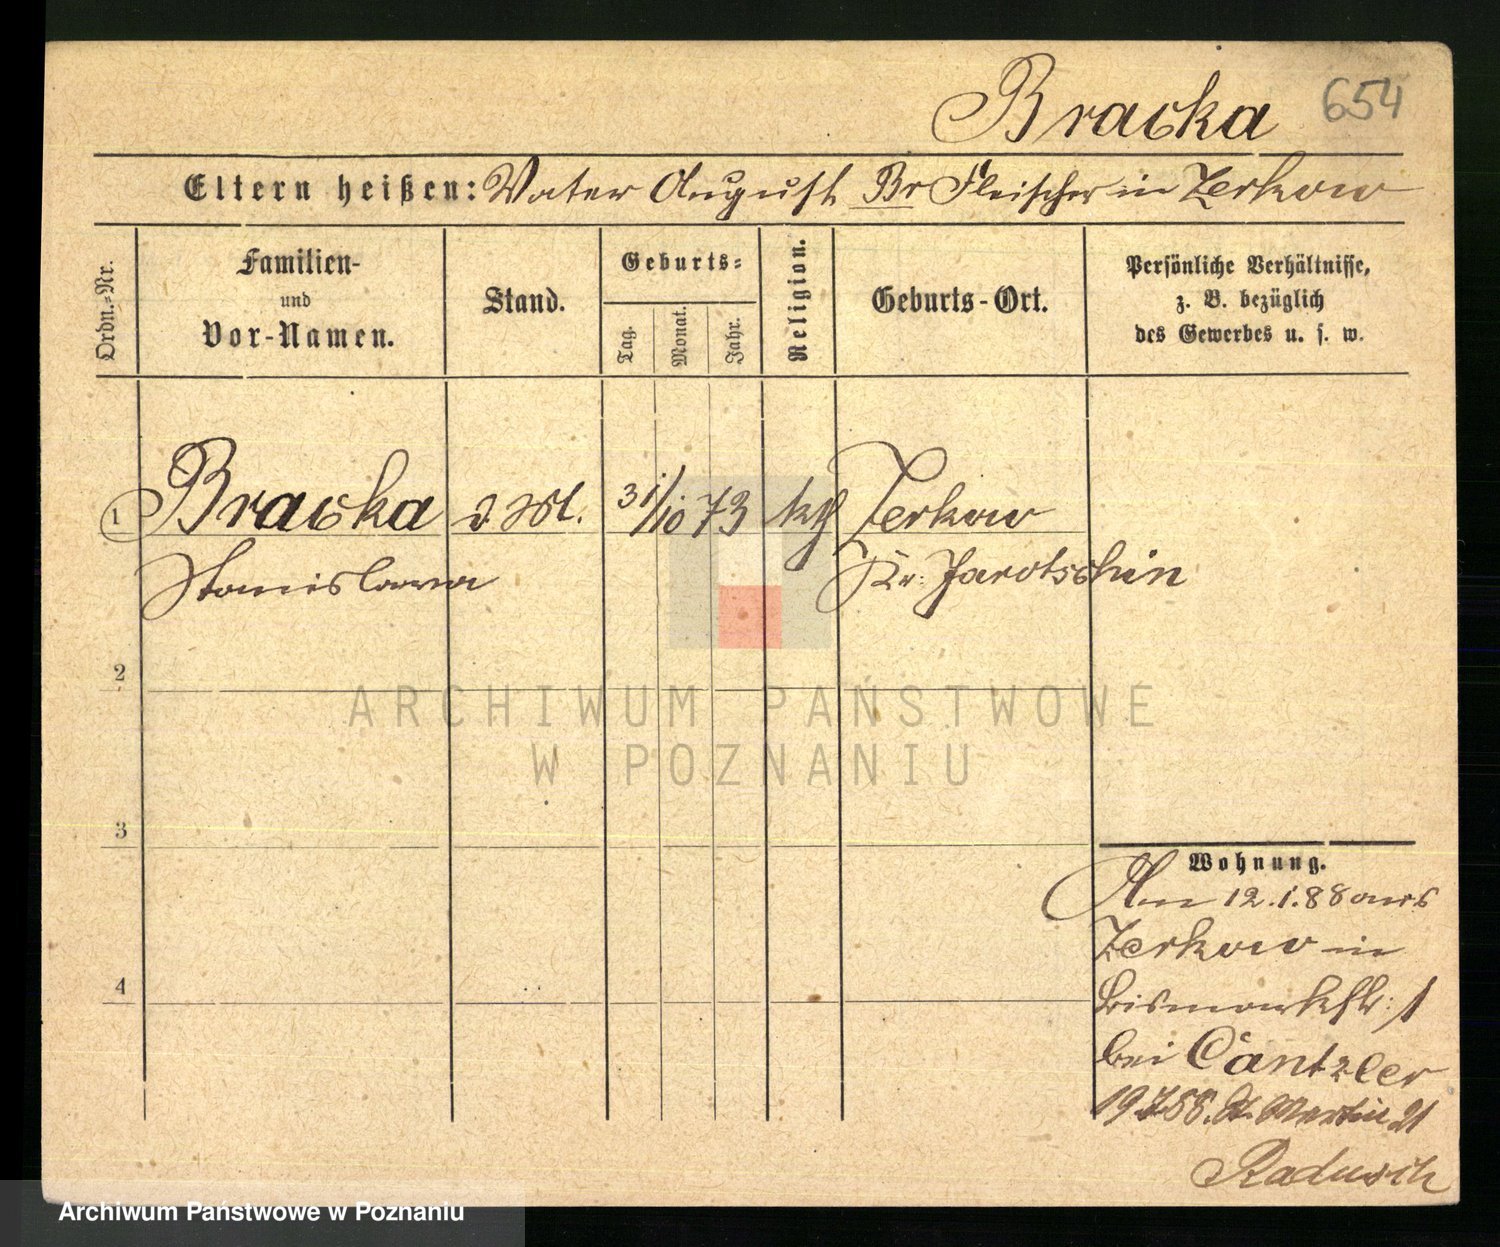 Bracka 654
Eltern heißen: Vater August Br Fleischer in Zerkow
Ordn.=Nr.
Familien-
und
Vor-Namen.
Stand.
Geburts=
Tag.
Monat.
Jahr.
Religion.
Geburts-Ort.
Persönliche Verhältnisse,
z. B. bezüglich
des Gewerbes u. s. w.
1 Bracka d. M. 31/10 73 kth Zerkow
Stanislawa Kr: Jarotschin
2
3
4
Wohnung.
Am 12.1.88 aus
Zerkow in
Bismarkstr: 1
bei Cantzler
St. Martin 21
Radusch
ARCHIWUM PAŃSTWOWE
W POZNANIU
Archiwum Państwowe w Poznaniu